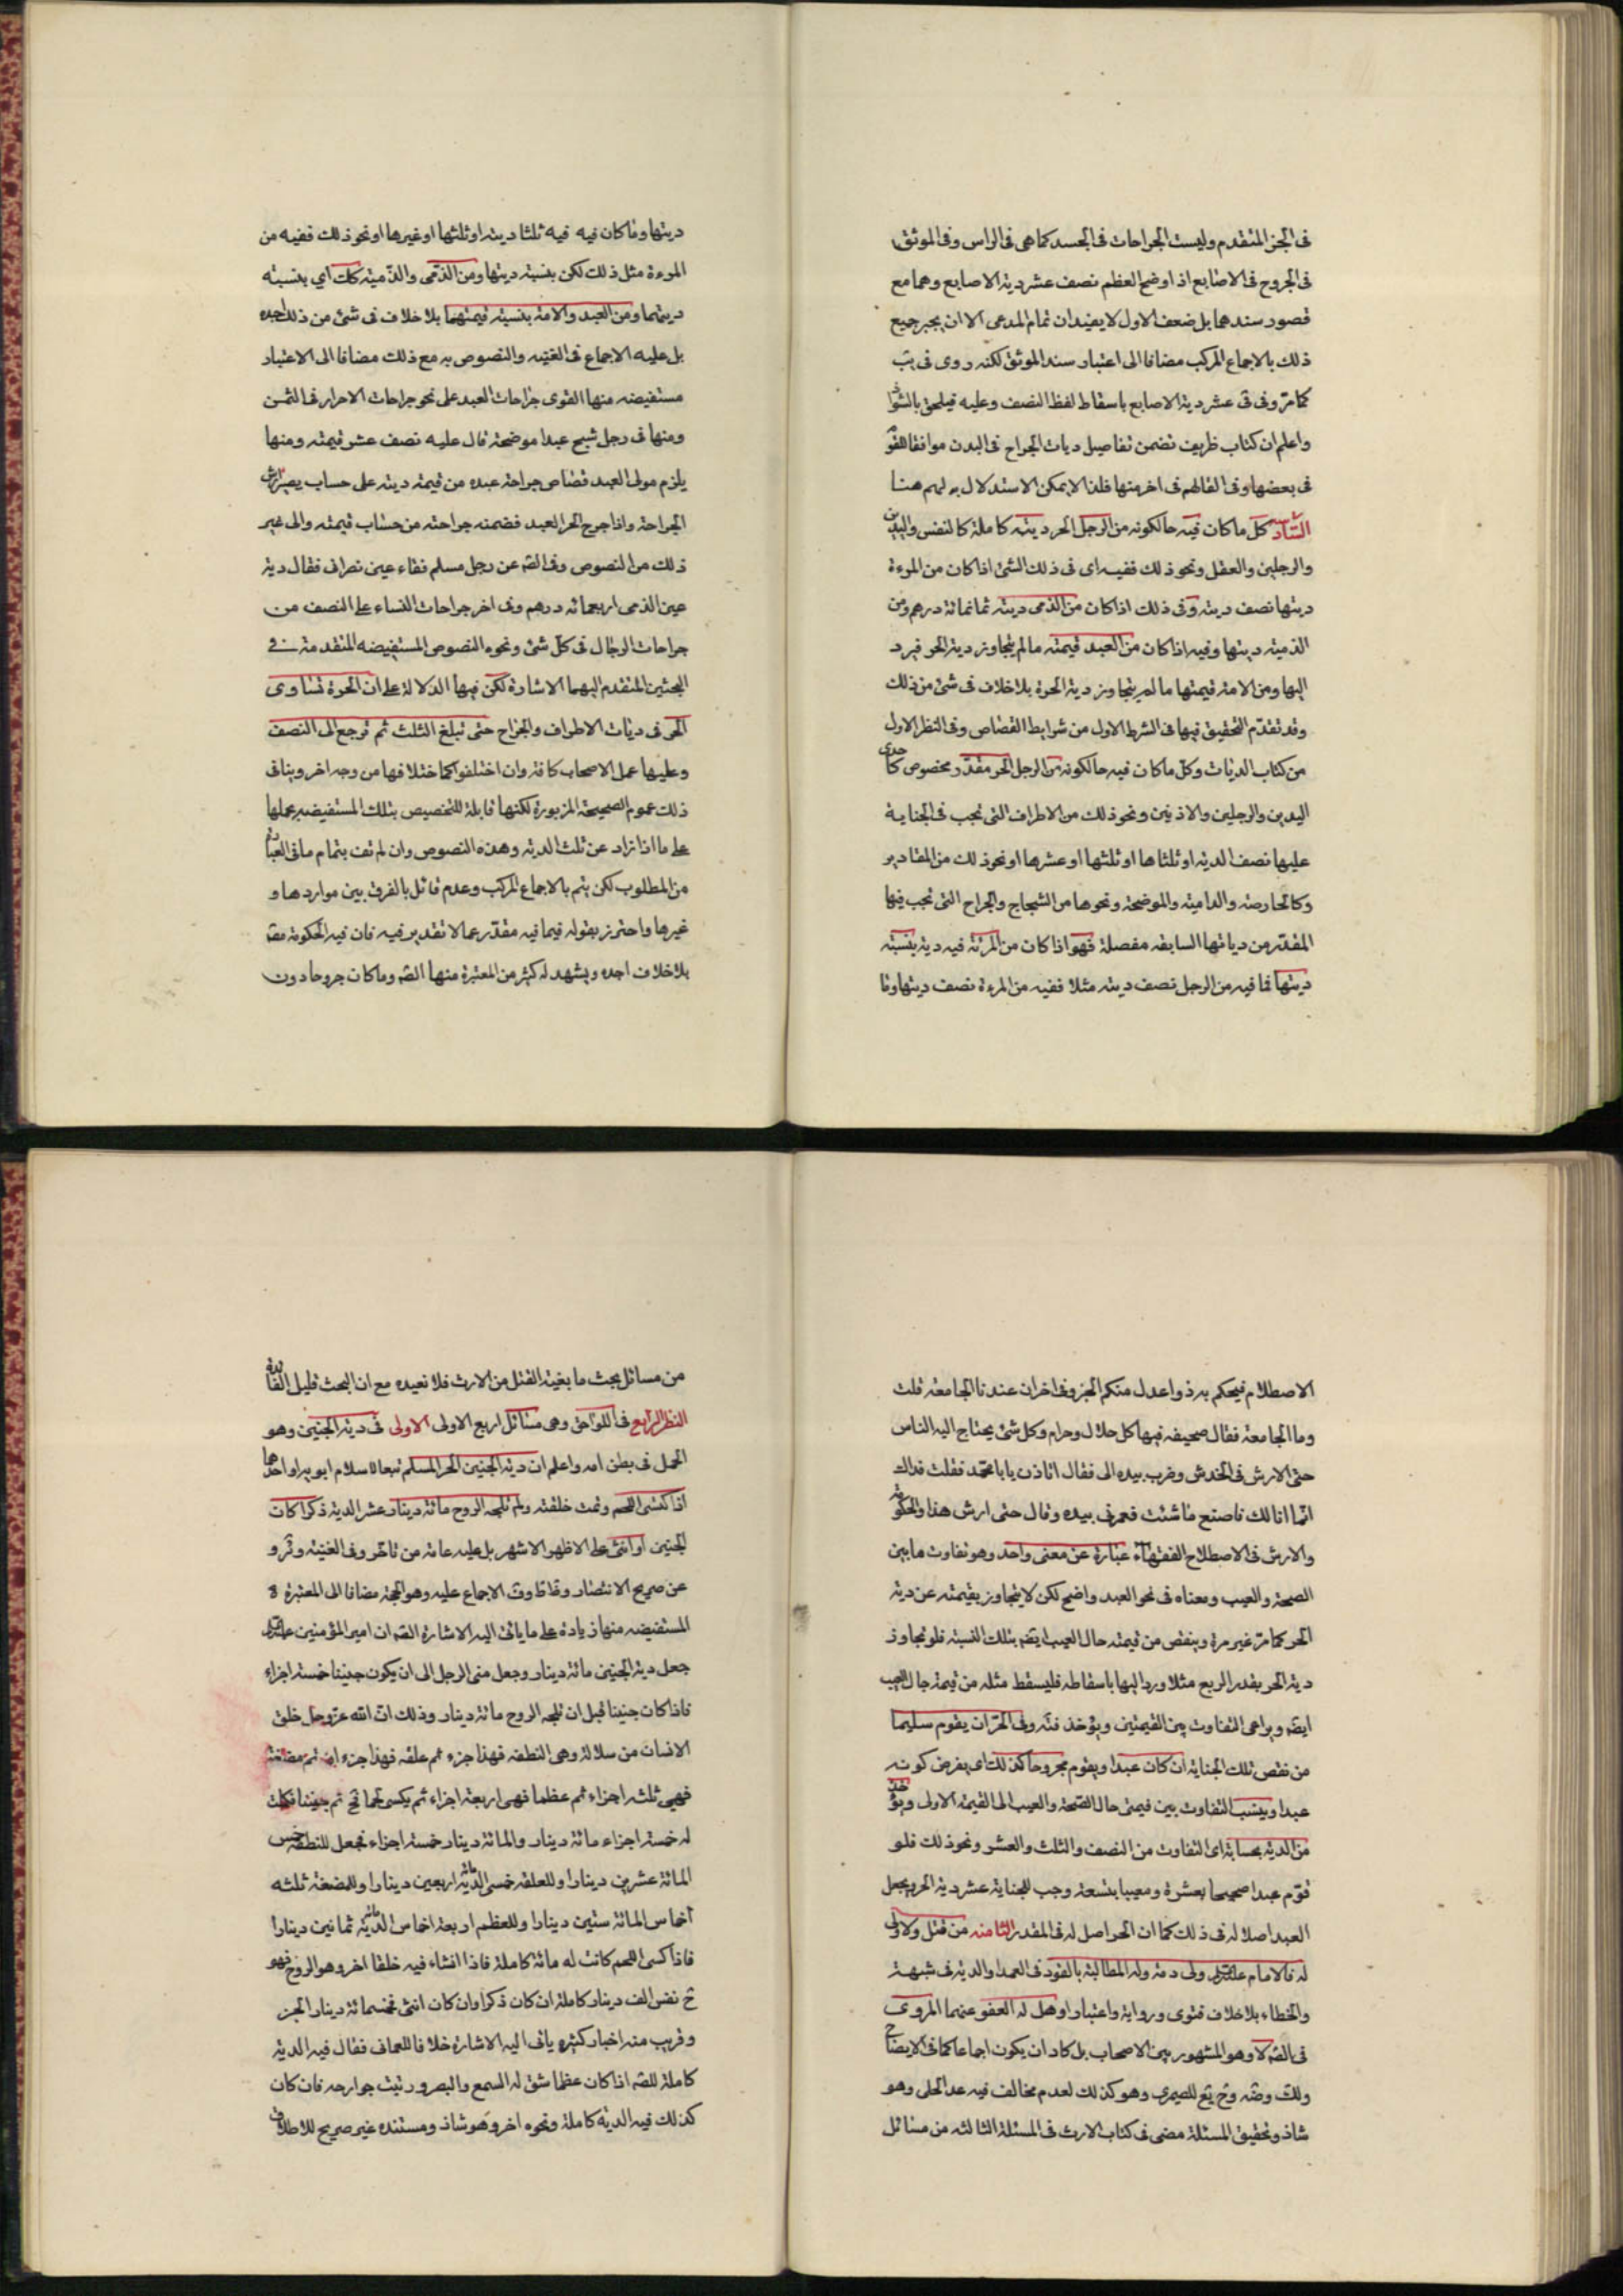 فى الخبر المتقدم وليست الجراحات فى الجسد كما هى فى الراس وفى الموثق
فى الجروح فى الاصابع اذا اوضح العظم نصف عشر دية الاصابع وهما مع
قصور سندهما بل ضعف الاول لا يفيدان تمام المدعى الا ان يجبر جميع
ذلك بالاجماع المركب مضافا الى اعتبار سند الموثق لكنه روى فى يب
كما مرّ وفى فى عشر دية الاصابع باسقاط لفظ النصف وعليه فيلحق بالشواذ
واعلم ان كتاب ظريف تضمن تفاصيل ديات الجراح فى البدن موافقا للقوم
فى بعضها وفى الفا لهم فى اخر منها فلذا لا يمكن الاستدلال به لهم هنا
السادسة كل ما كان فيه حالكونه من الرجل الحر ديته كاملة كالنفس واليدين
والرجلين والعقل ونحو ذلك ففيه اى فى ذلك الشئ اذا كان من المرءة
ديتها نصف ديته وفى ذلك اذا كان من الذمى ديته ثمانمائة درهم ومن
الذمية ديتها وفيه اذا كان من العبد قيمته ما لم يتجاوز دية الحر فيرد
اليها ومن الامة قيمتها ما لم يتجاوز دية الحرة بلا خلاف فى شئ من ذلك
وقد تقدّم التحقيق فيها فى الشرط الاول من شرايط القصاص وفى النظر الاول
من كتاب الديات وكل ما كان فيه حالكونه من الرجل الحر مقدّر مخصوص كاحدى
اليدين والرجلين والاذنين ونحو ذلك من الاطراف التى تجب فى الجناية
عليها نصف الدية او ثلثاها او ثلثها او عشرها او نحو ذلك من المقادير
وكالحارصة والدامية والموضحة ونحوها من الشجاج والجراح التى تجب فيها
المقدّر من دياتها السابقه مفصلة فهو اذا كان من المرئة فيه دية بنسبة
ديتها فما فيه من الرجل نصف ديته مثلا ففيه من المرءة نصف ديتها وما
ديتها وما كان فيه فيه ثلثا ديته او ثلثها او غيرها او نحو ذلك ففيه من
المرءة مثل ذلك لكن بنسبة ديتها ومن الذّمى والذّمية كك اي بنسبة
ديتهما ومن العبد والامة بنسبة قيمتهما بلا خلاف فى شئ من ذلك اجده
بل عليه الاجماع فى الغنيه والنصوص به مع ذلك مضافا الى الاعتبار
مستفيضه منها القوى جراحات العبد على نحو جراحات الاحرار فى الثمن
ومنها فى رجل شبح عبدا موضحة قال عليه نصف عشر قيمته ومنها
يلزم مولى العبد قصاص جراحة عبده من قيمة ديته على حساب يصير ارش
الجراحة واذا جرح الحر العبد فضمنه جراحته من حساب قيمته والى غير
ذلك من النصوص وفى الصّ عن رجل مسلم فقاء عين نصرانى فقال دية
عين الذمى اربعمائه درهم وفى اخر جراحات النساء على النصف من
جراحات الرجال فى كل شئ ونحوه النصوص المستفيضه المتقدمة فى
البحثين المتقدم اليهما الاشارة لكن فيها الدلالة على ان الحرة تساوى
الحر فى ديات الاطراف والجراح حتى تبلغ الثلث ثم ترجع الى النصف
وعليها عمل الاصحاب كافة وان اختلفوا كما اختلافها من وجه اخر وينافى
ذلك عموم الصحيحة المزبورة لكنها قابلة للتخصيص بتلك المستفيضه بحملها
على ما اذا زاد عن ثلث الدية وهذه النصوص وان لم تف بتمام ما فى العبارة
من المطلوب لكن يتم بالاجماع المركب وعدم قائل بالفرق بين مواردها و
غيرها واحترز بقوله فيما فيه مقدّر عما لا تقدير فيه فان فيه الحكومة مطه
بلا خلاف اجده ويشهد له كثير من المعتبرة منها الصّ وما كان جروحا دون
الاصطلام فيحكم به ذوا عدل منكم الخبر وفى اخر ان عندنا الجامعة قلت
وما الجامعة فقال صحيفه فيها كل حلال وحرام وكل شئ يحتاج اليه الناس
حتى الارش فى الخدش وضرب بيده الى فقال اتاذن يا با محمد فقلت فداك
انّما انا لك فاصنع ما شئت فغمزنى بيده وقال حتى ارش هذا والحكومة
والارش فى الاصطلاح الفقهاء عبارة عن معنى واحد وهو تفاوت ما بين
الصحة والعيب ومعناه فى نحو العبد واضح لكن لا يتجاوز بقيمته عن دية
الحر كما مرّ غير مرة وينقص من قيمته حال العيب ايضه بتلك النسبة فلو تجاوز
دية الحر بقدر الربع مثلا ورد اليها باسقاطه فليسقط مثله من قيمة حال العيب
ايضه ويراعى التفاوت بين القيمتين ويؤخذ منه وفى الحرّ ان يقوم سليما
من نقص تلك الجناية ان كان عبدا ويقوم مجروحا كذلك اى يفرض كونه
عبدا وينسب التفاوت بين قيمتى حال الصّحة والعيب الى القيمة الاولى ويؤخذ
من الدية بحسابه اى التفاوت من النصف والثلث والعشر ونحو ذلك فلو
قوّم عبدا صحيحا بعشرة ومعيبا بتسعة وجب للجناية عشر دية الحر ويجعل
العبد اصلا له فى ذلك كما ان الحر اصل له فى المقدر الثامنه من قتل ولا ولى
له فالامام عليه السلام ولى دمه وله المطالبة بالقود فى العمد او الدية فى شبهة
والخطاء بلا خلاف فتوى ورواية واعتبارا وهل له العفو عنهما المروى
فى الصّ لا وهو المشهور بين الاصحاب بل كاد ان يكون اجماعا كما فى الايضاح
ولك وضه وح يع للصيمرى وهو كذلك لعدم مخالف فيه عدا الحلى وهو
شاذ وتحقيق المسئلة مضى فى كتاب الارث فى المسئلة الثالثه من مسائل
من مسائل بحث ما بغية القتل من الارث فلا نعيده مع ان البحث قليل الفائدة
النظر الرابع فى اللواحق وهى مسائل اربع الاولى الاولى فى دية الجنين وهو
الحمل فى بطن امه واعلم ان دية الجنين الحر المسلم تبعا لاسلام ابويه او احدهما
اذا اكتسى اللحم وتمت خلقته ولم تلجه الروح مائة دينار عشر الدية ذكرا كان
الجنين او انثى على الاظهر الاشهر بل عليه عامة من تاخر وفى الغنيه وئر و
عن صريح الانتصار وظاط وف الاجماع عليه وهو الحجة مضافا الى المعتبرة
المستفيضه منها زيادة على ما ياتى اليه الاشارة الصّ ان امير المؤمنين عليه السلام
جعل دية الجنين مائة دينار وجعل منى الرجل الى ان يكون جنينا خمسة اجزاء
فاذا كان جنينا قبل ان تلجه الروح مائة دينار وذلك ان الله عز وجل خلق
الانسان من سلالة وهى النطفه فهذا جزء ثم علقه فهذا جزءان ثم مضغة
فهى ثلثه اجزاء ثم عظما فهى اربعة اجزاء ثم يكسى لحما فح تم جنينا فكملت
له خمسة اجزاء مائة دينار والمائة دينار خمسة اجزاء فجعل للنطفه خمس
المائة عشرين دينارا وللعلقه خمسى المائة اربعين دينارا وللمضغة ثلثه
اخماس المائة ستين دينارا وللعظم اربعة اخماس المائة ثمانين دينارا
فاذا كسى اللحم كانت له مائة كاملة فاذا انشاء فيه خلقا اخر وهو الروح فهو
ح نفس الف دينار كاملة ان كان ذكرا وان كان انثى فخمسمائة دينار الخبر
وقريب منه اخبار كثيره ياتى اليه الاشارة خلافا للعمانى فقال فيه الدية
كاملة للصّ اذا كان عظما شق له السمع والبصر ورتبت جوارحه فان كان
كذلك فيه الدية كاملة ونحوه اخر وهو شاذ ومستنده غير صريح للاطلاق